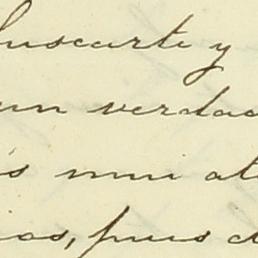 buscarte y
un verdad
s mui at
ias, pues d